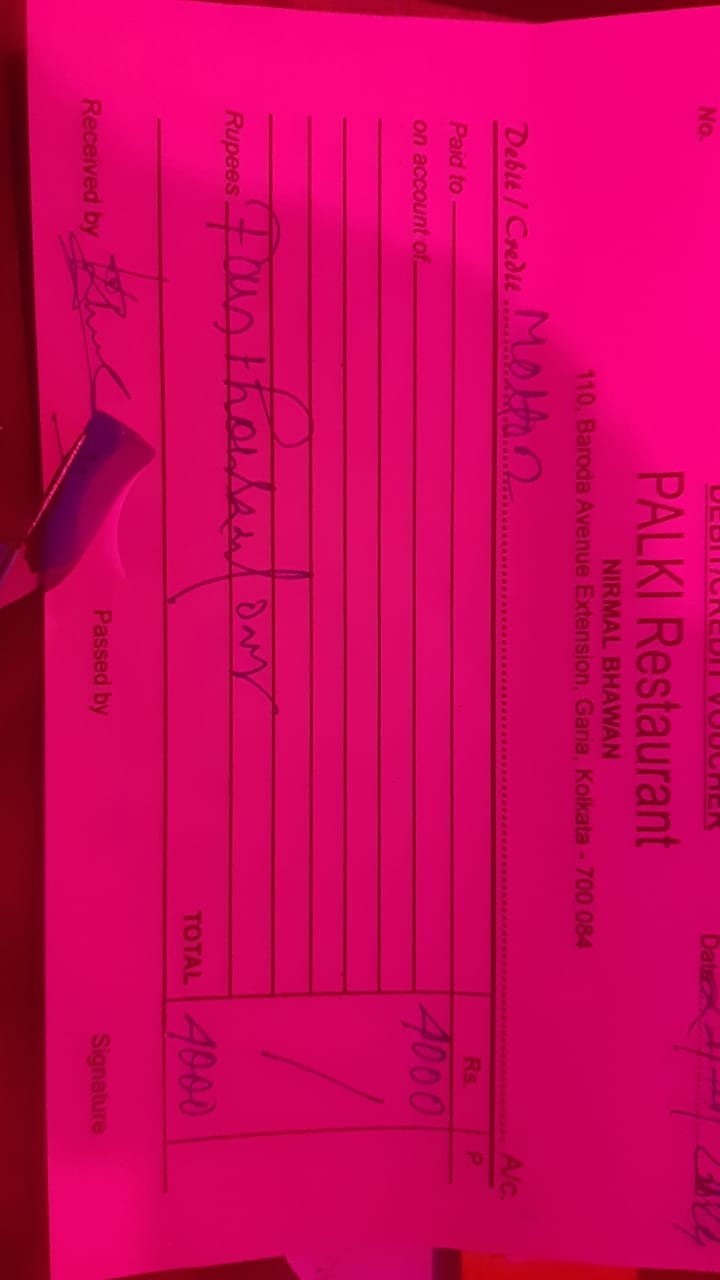 DEBIT/CREDIT VOUCHER
No.
Date
PALKI Restaurant
NIRMAL BHAWAN
110, Baroda Avenue Extension, Garia, Kolkata - 700 084
Debit / Credit A/c.
Paid to Rs. P.
on account of 4000
Rupees Four thousand only
TOTAL 4000
Received by Passed by Signature